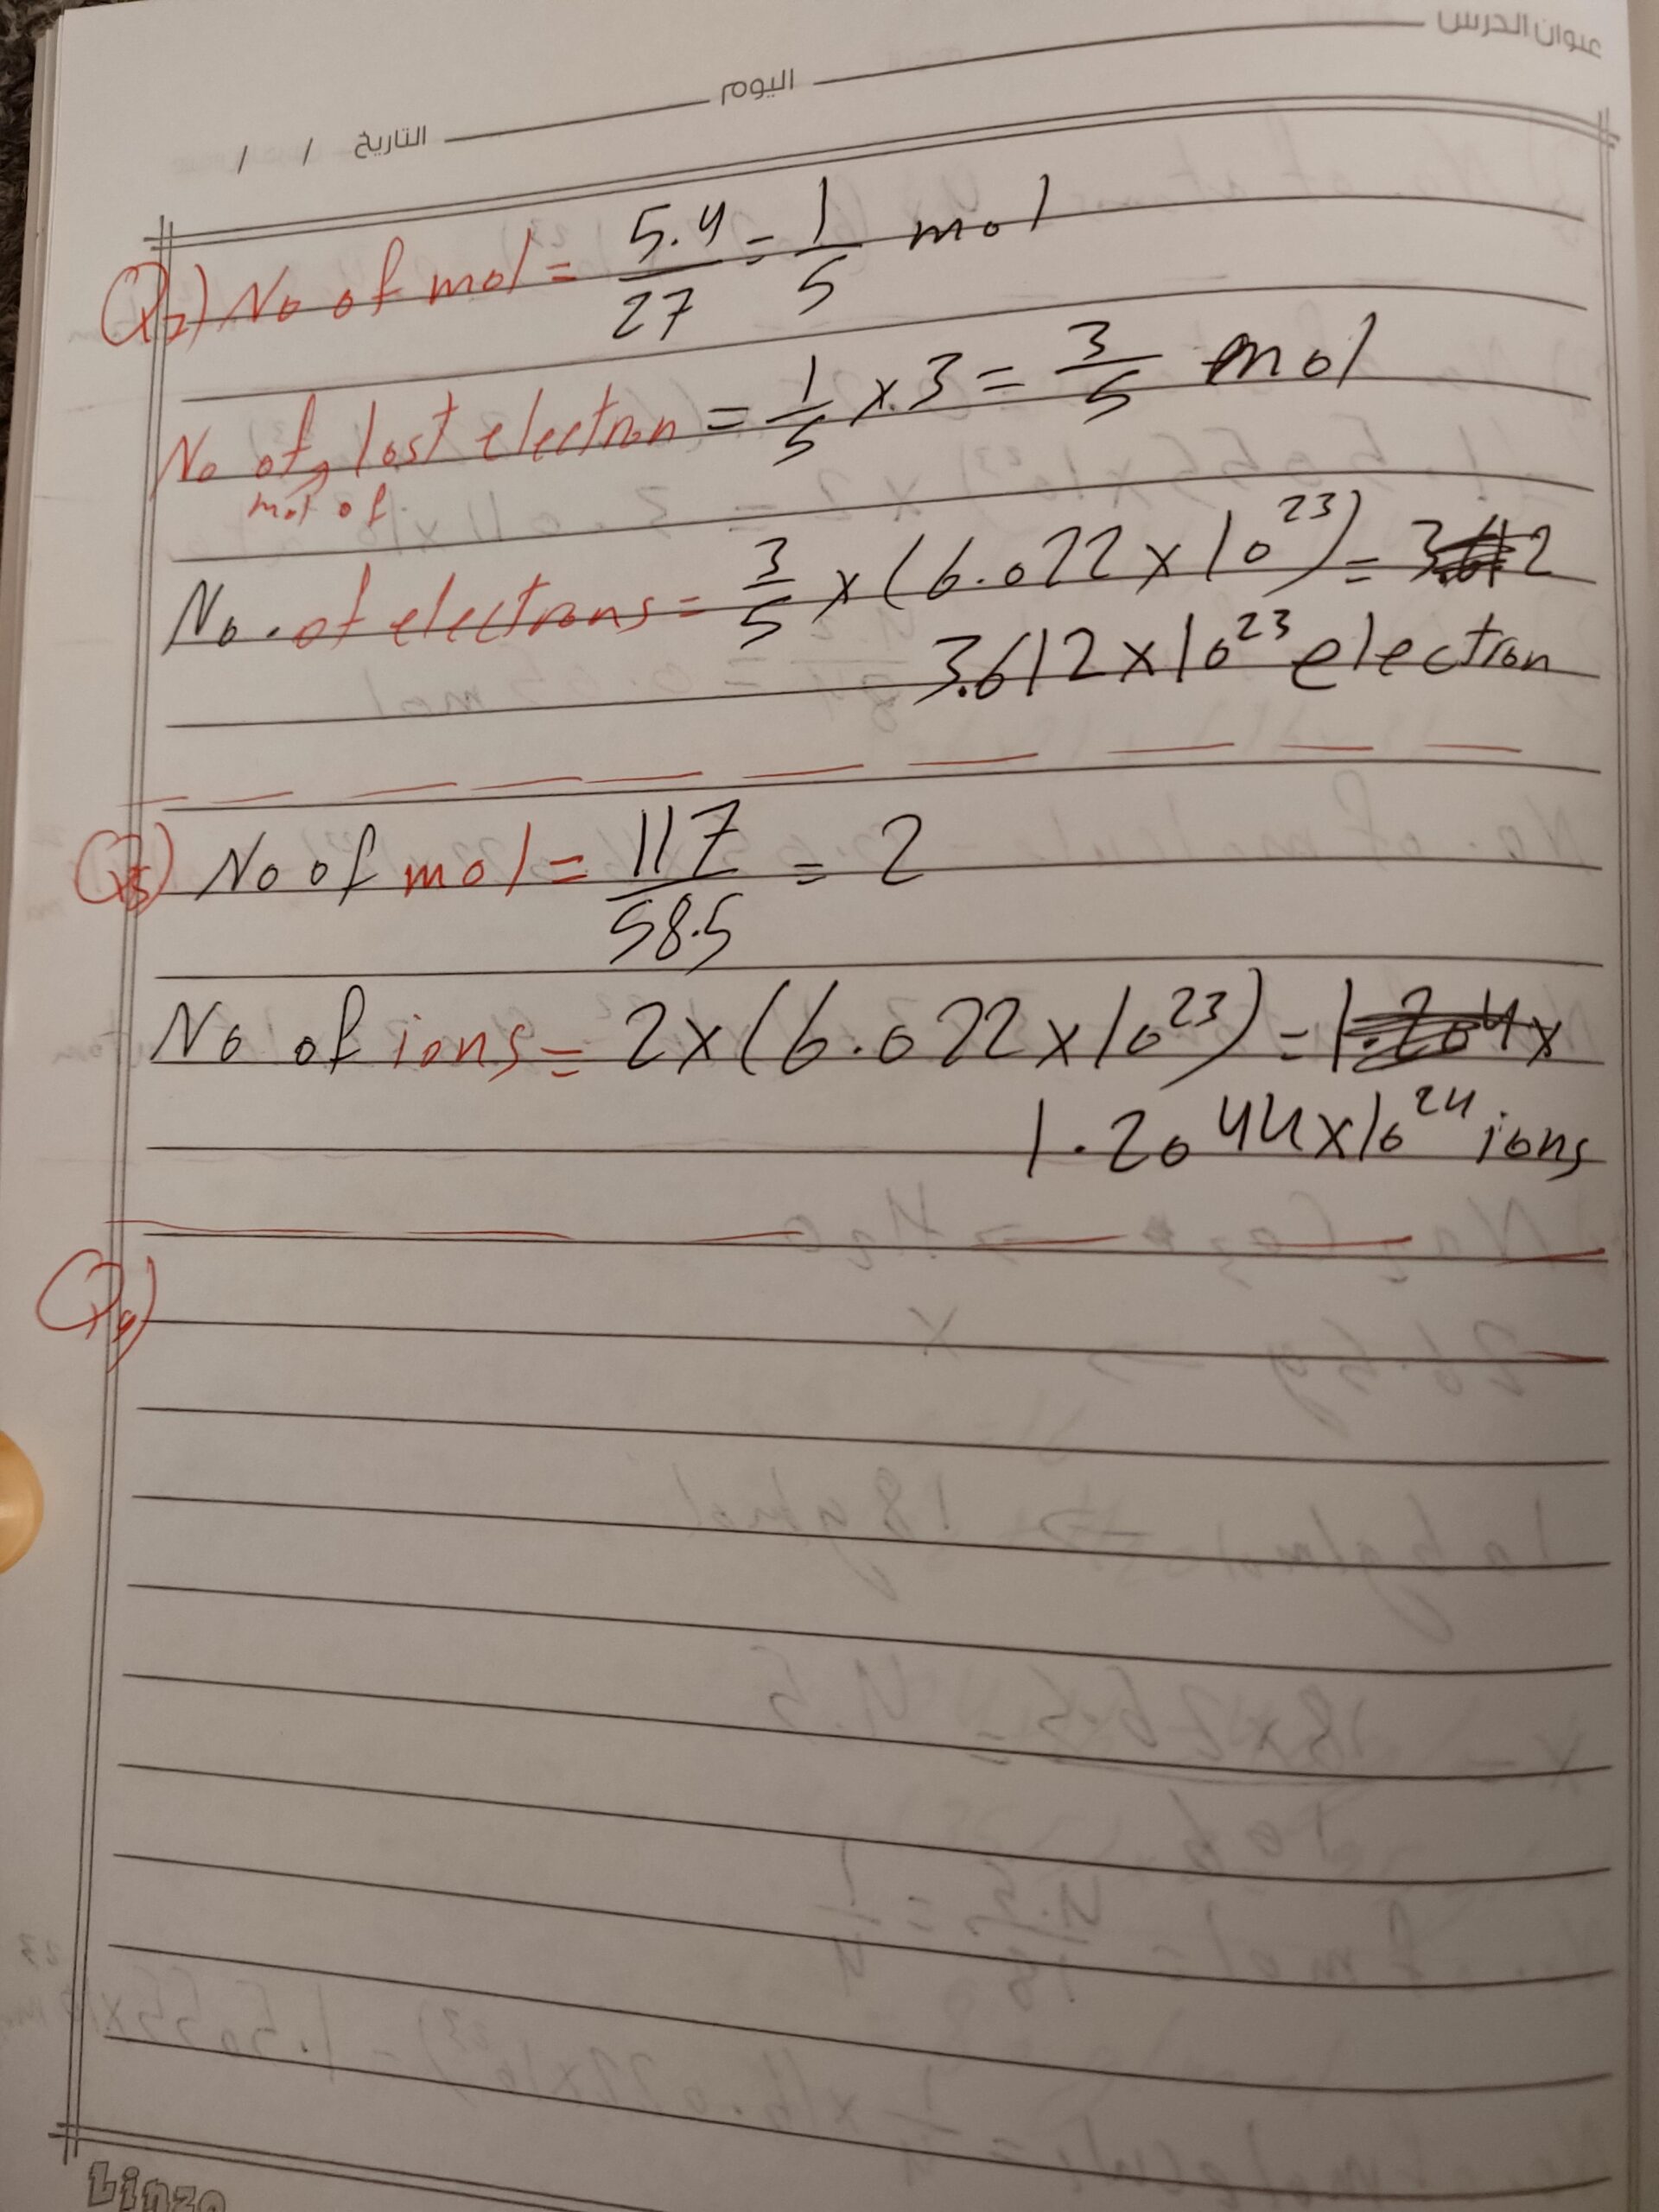 عنوان الدرس
اليوم
التاريخ / /
Q2) No of mol = 5.4/27 = 1/5 mol
No of lost electron = 1/5 x 3 = 3/5 mol
mol of
No. of electrons = 3/5 x (6.022 x 10^23) =
3.612 x 10^23 electron
Q3) No of mol = 117/58.5 = 2
No of ions = 2 x (6.022 x 10^23) =
1.2044 x 10^24 ions
Q4)
Linzo